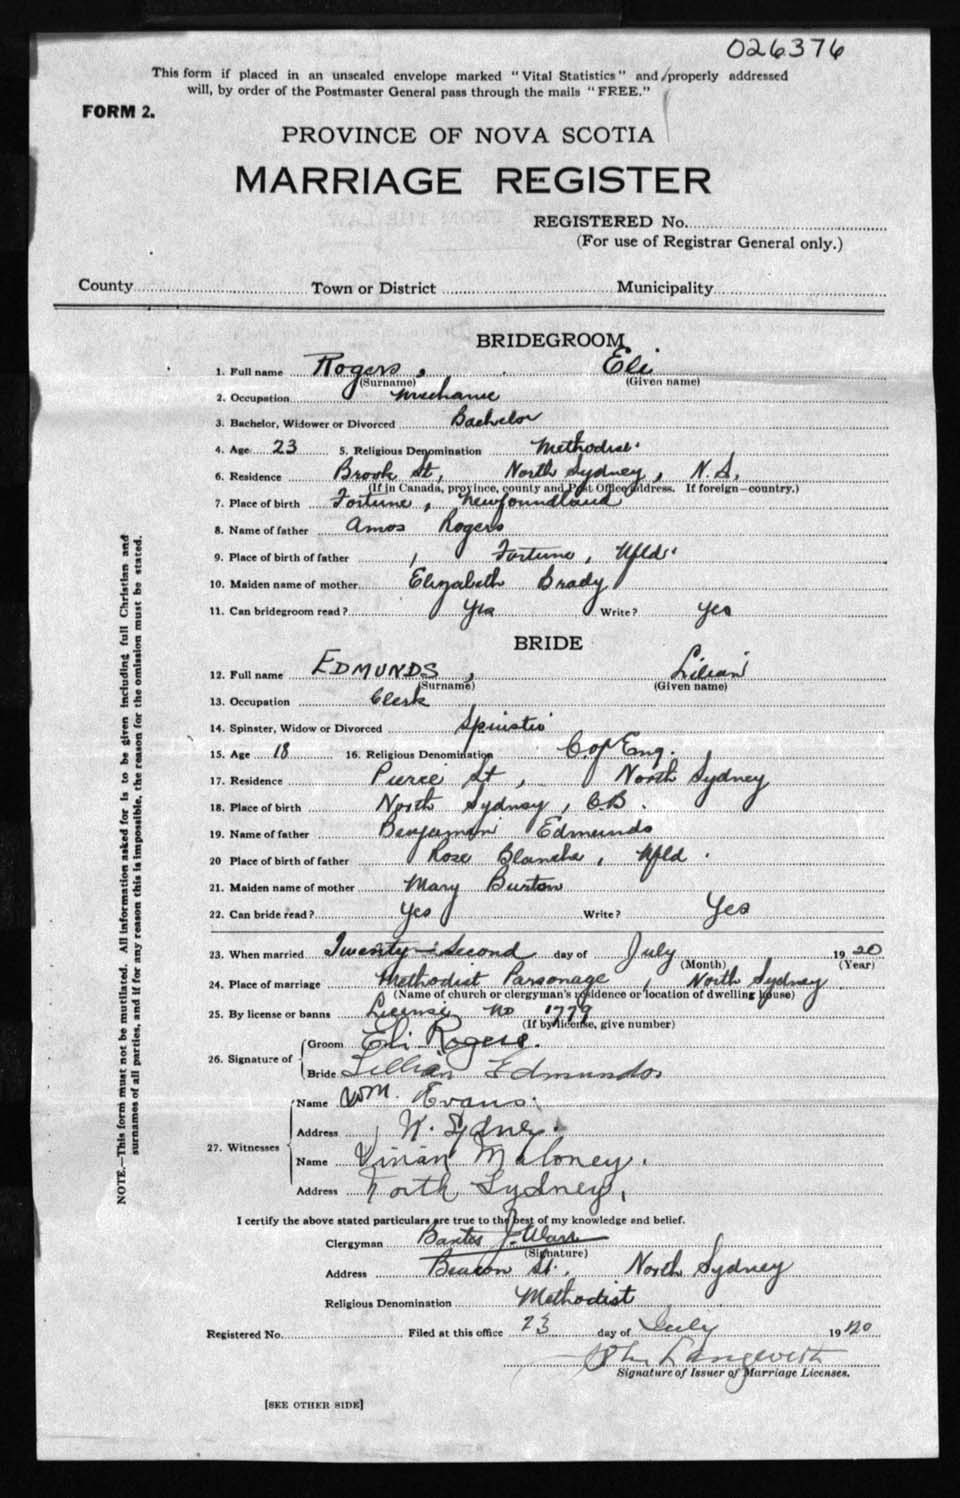 026376
This form if placed in an unsealed envelope marked "Vital Statistics" and properly addressed
will, by order of the Postmaster General pass through the mails "FREE."
FORM 2.
PROVINCE OF NOVA SCOTIA
MARRIAGE REGISTER
REGISTERED No.
(For use of Registrar General only.)
County Town or District Municipality
BRIDEGROOM
1. Full name Rogers, Eli
(Surname) (Given name)
2. Occupation Mechanic
3. Bachelor, Widower or Divorced Bachelor
4. Age 23 5. Religious Denomination Methodist
6. Residence Brook St, North Sydney, N.S.
(If in Canada, province, county and Post Office address. If foreign—country.)
7. Place of birth Fortune, Newfoundland
8. Name of father Amos Rogers
9. Place of birth of father Fortune, Nfld.
10. Maiden name of mother Elizabeth Brady
11. Can bridegroom read? Yes Write? Yes
BRIDE
12. Full name EDMUNDS, Lilian
(Surname) (Given name)
13. Occupation Clerk
14. Spinster, Widow or Divorced Spinster
15. Age 18 16. Religious Denomination C. of Eng.
17. Residence Pierce St, North Sydney
18. Place of birth North Sydney, C.B.
19. Name of father Benjamin Edmunds
20 Place of birth of father Rose Blanche, Nfld.
21. Maiden name of mother Mary Burton
22. Can bride read? Yes Write? Yes
23. When married Twenty-Second day of July 1920
(Month) (Year)
24. Place of marriage Methodist Parsonage, North Sydney
(Name of church or clergyman's residence or location of dwelling house)
25. By license or banns License No 1779
(If by license, give number)
26. Signature of Groom Eli Rogers.
Bride Lillian Edmunds
27. Witnesses Name Wm. Evans.
Address N. Sydney.
Name Vivian Maloney.
Address North Sydney,
I certify the above stated particulars are true to the best of my knowledge and belief.
Clergyman
(Signature)
Address Beacon St. North Sydney
Religious Denomination Methodist
Registered No. Filed at this office 23 day of July 1920
Signature of Issuer of Marriage Licenses.
[SEE OTHER SIDE]
NOTE.—This form must not be mutilated. All information asked for is to be given including full Christian and
surnames of all parties, and if for any reason this is impossible, the reason for the omission must be stated.